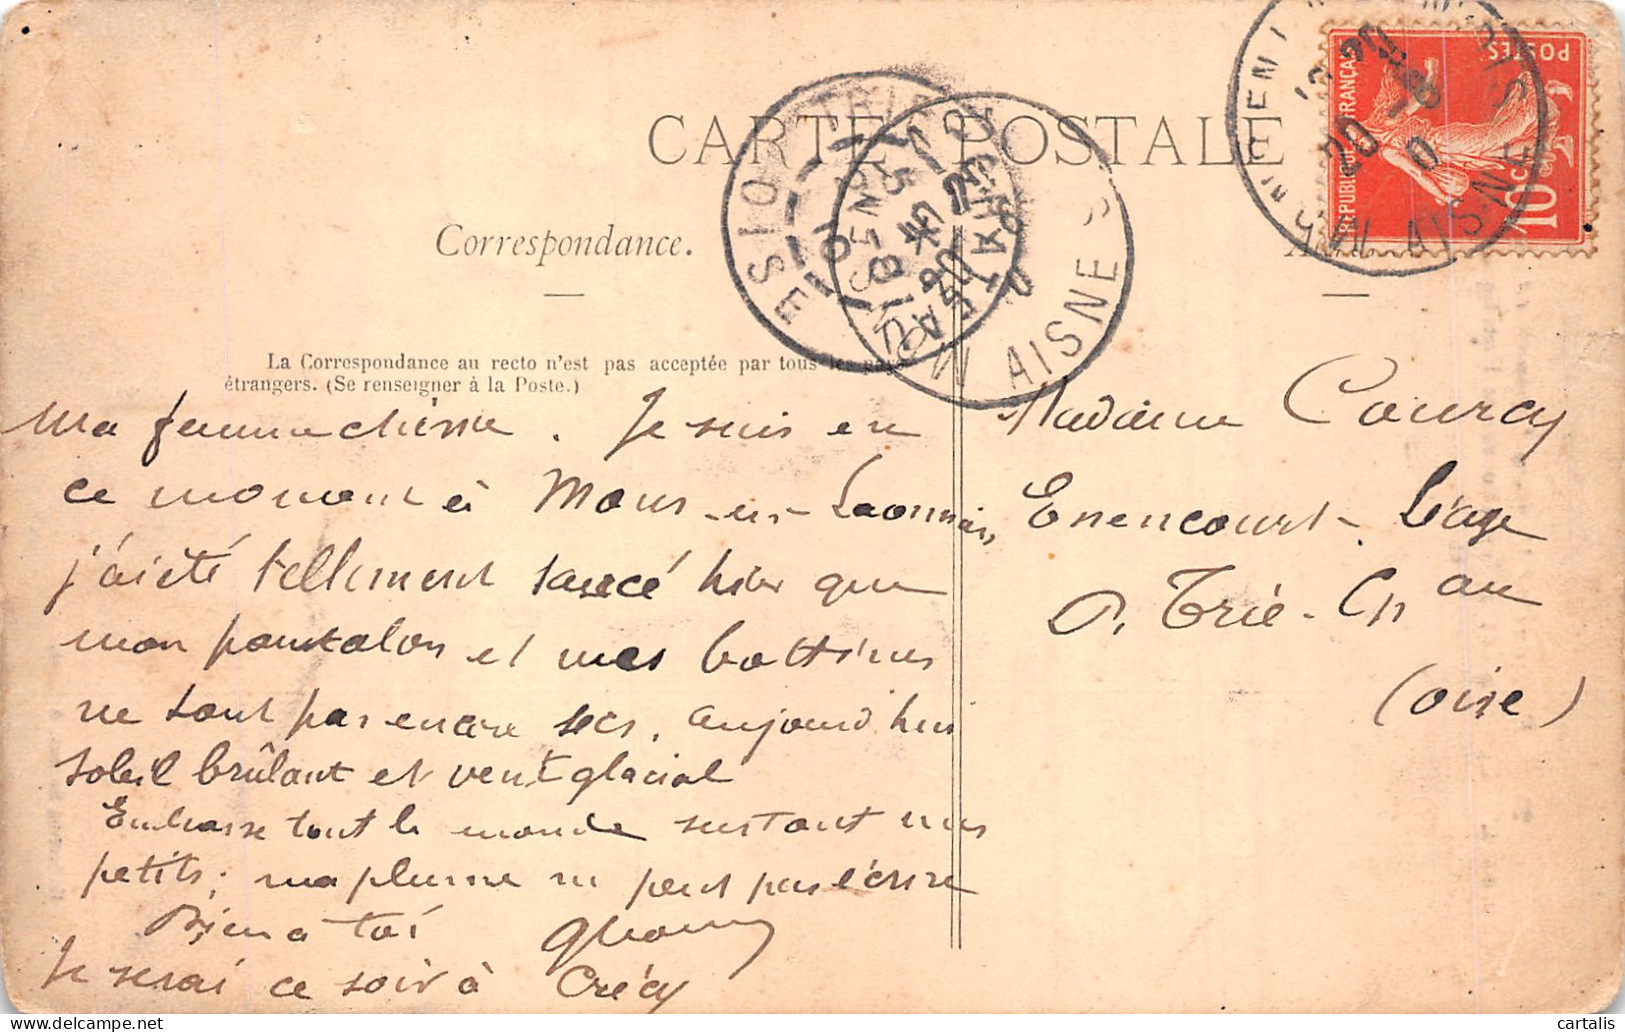 CARTE POSTALE
Correspondance.
La Correspondance au recto n'est pas acceptée par tous les pays
étrangers. (Se renseigner à la Poste.)
Ma femme chérie. Je suis en
ce moment à Mons-en-Laonnais,
j'ai été tellement saucé hier que
mon pantalon et mes bottines
ne sont pas encore secs, aujourd'hui
soleil brûlant et vent glacial
Embrasse tout le monde surtout nos
petits; ma plume ne peut pas l'écrire
Bien à toi
Je serai ce soir à Crécy
Madame Courcy
Enencourt-Léage
P. Trie-Ch au
(Oise)
REPUBLIQUE FRANÇAISE
POSTES
10 c
AISNE
TRIE CHATEAU
OISE
AISNE
cartalis